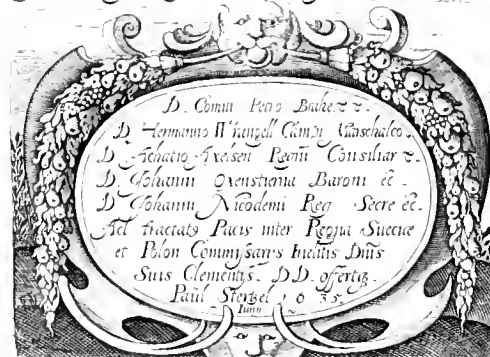 D. Comiti Petro Brahe ꝛc ꝛc.
D. Hermanno Wrangell Campi Marschalco.
D. Achatio Axelsen Regni Consiliar ꝛc.
D. Johanni Oxenstierna Baroni ec.
D. Johanni Nicodemi Reg Secre ec.
Ad tractatꝰ Pacis inter Regna Sueciæ
et Polon Commissariis Inclitis Dnis
Suis Clementis. DD. offertqꝫ
Paul Stertzel 1635
Iunii